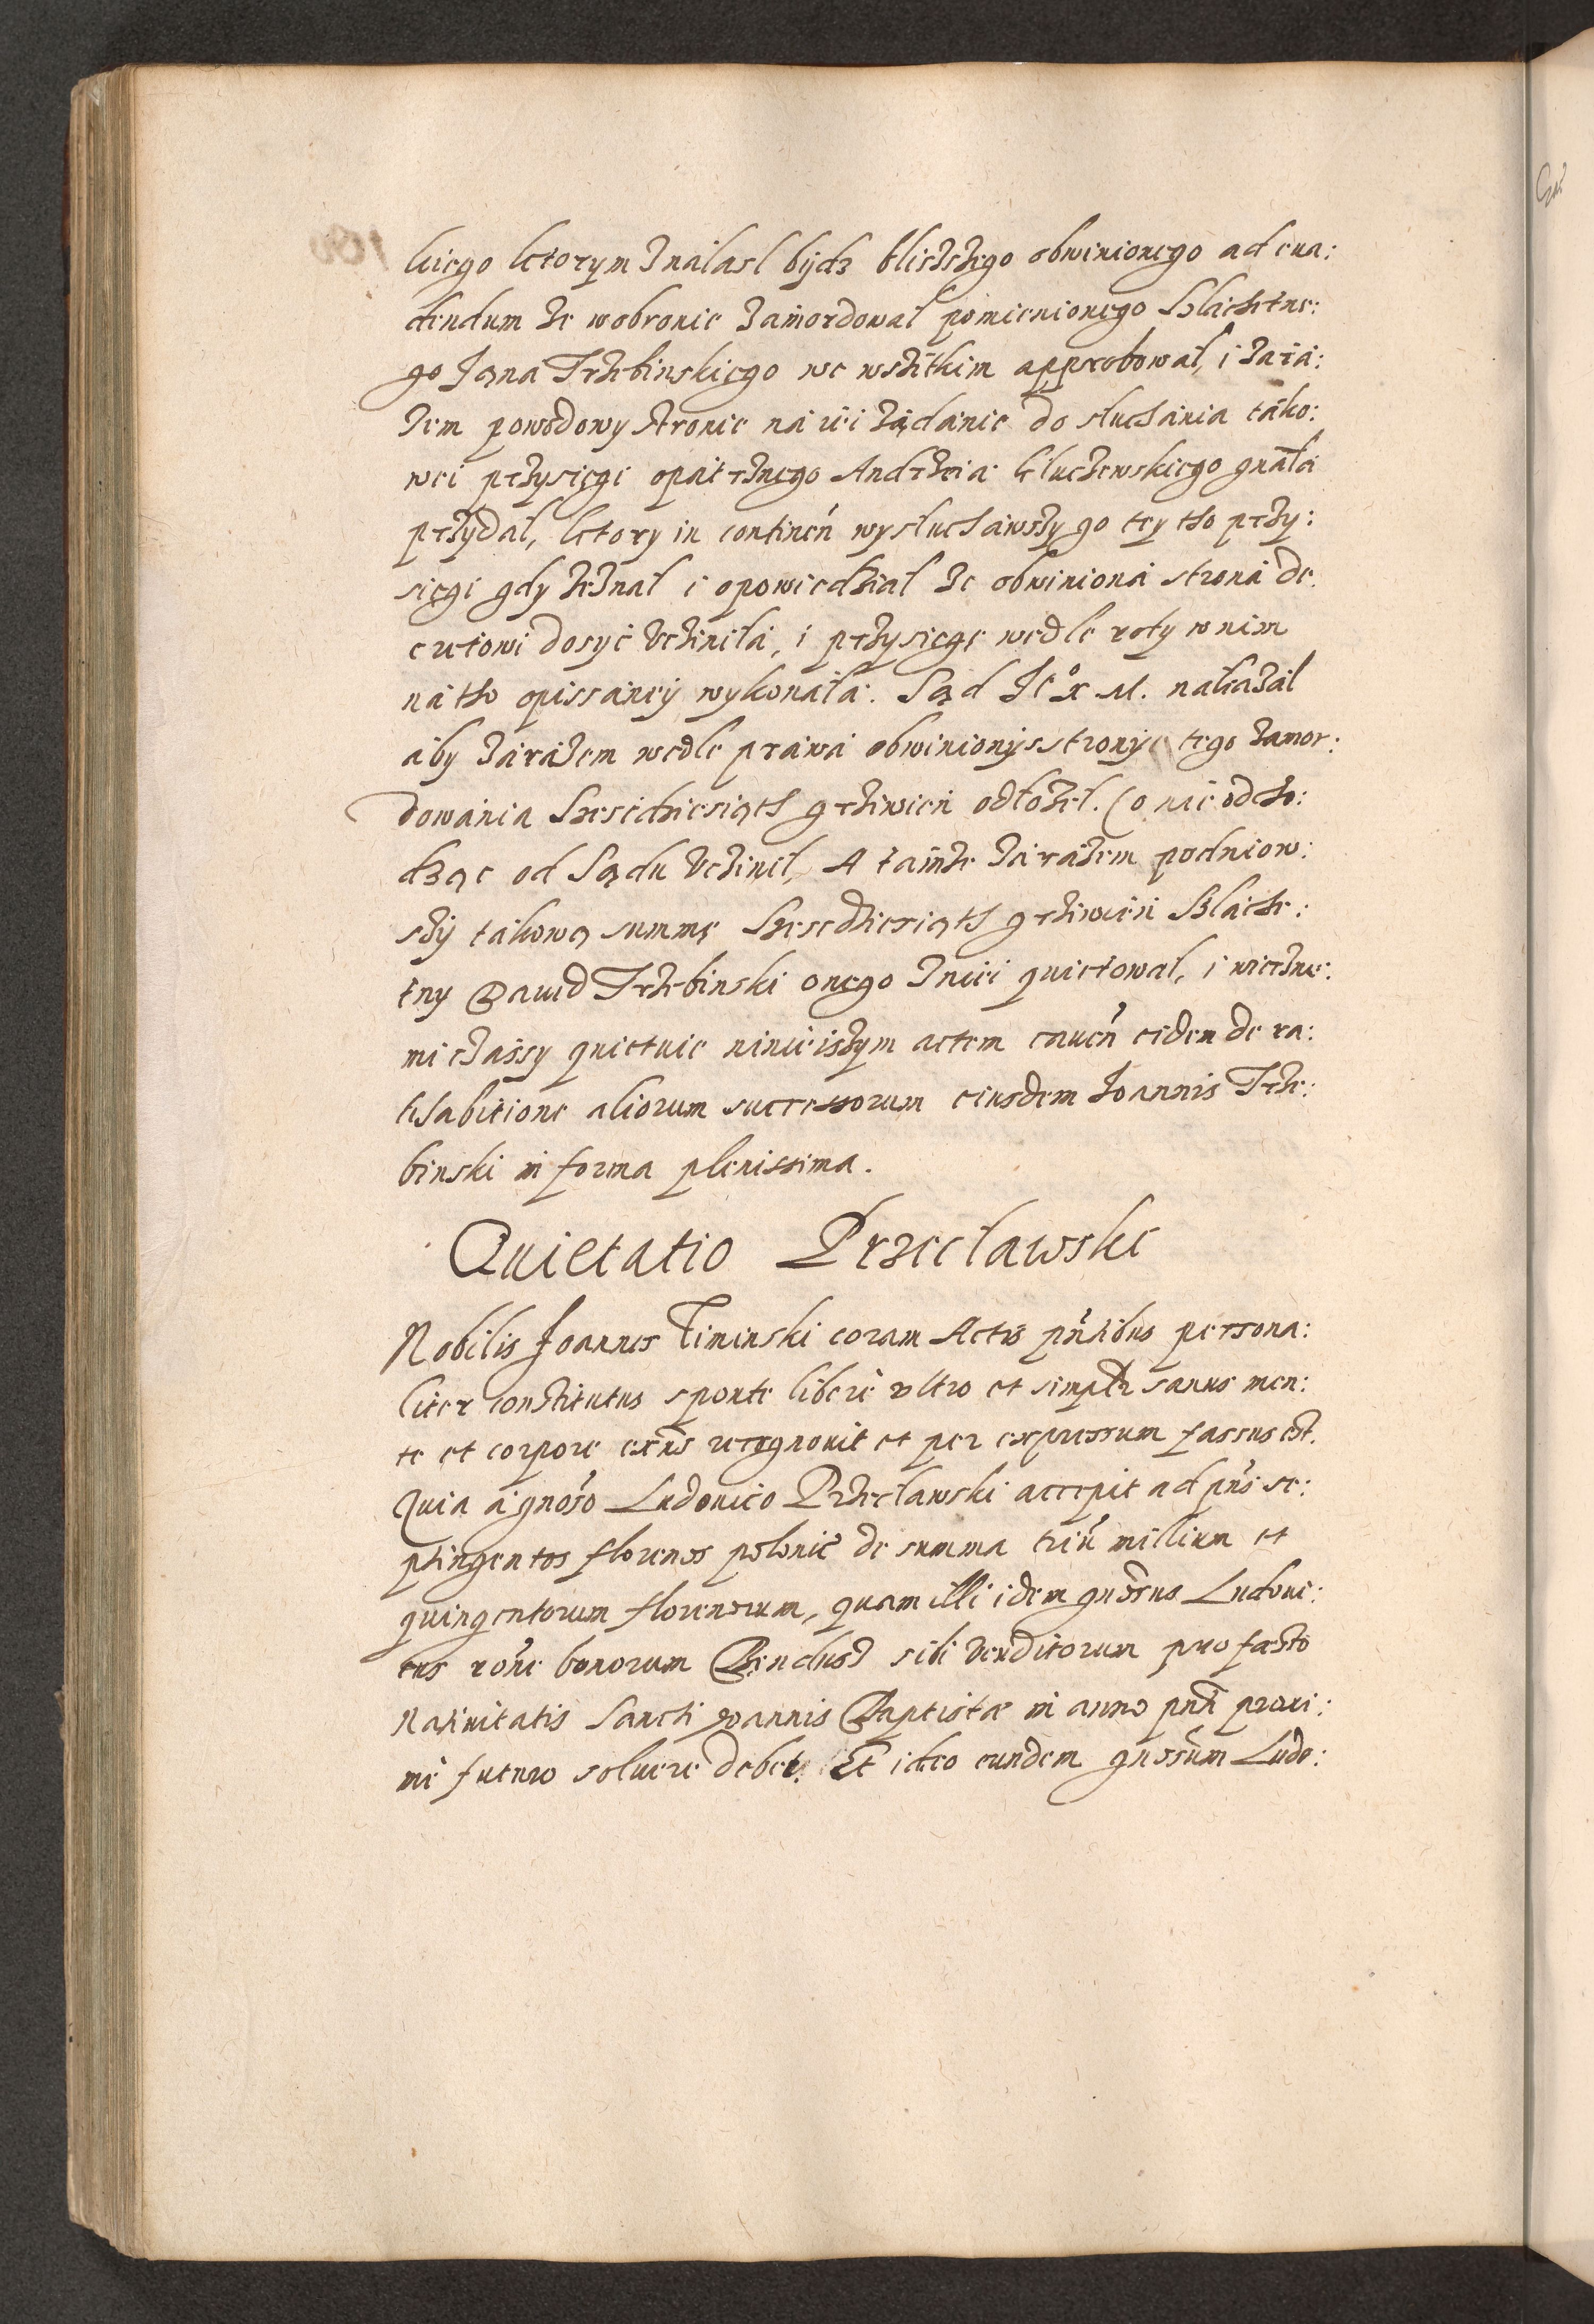 kiego ktorym znalasl bydz blizszego obwinionego ad eua:
dendum ze wobronie zamordowal pomienionego Szlachetne:
go Jana Trzebinskięgo we wszitkim approbował, i zara:
zem powodowy stronie na iei żądanie do sluchania tako:
wei przysięgi opatrznego Andrzeia Kluczewskiego gnała
przydal, ktory in continen wysluchawszy go tey tho przy:
sięgi gdy zeznal i opowiedzial ze obwiniona strona de
cretowi dosyć vczinila, i przysięgę wedle roty w nim
na tho opissaney wykonala. Sąd Jeo X M. nakazal
aby zarazem wedle prawa obwinionÿ strony tego zamor:
dowania Szescdziesiąth grziwien odłożel. Co nie odcho:
dząc od Sądu vczinil, A tamze zarazem podniow:
szÿ takową summę Szescdziesiąth grziwien Szlache:
tny Dawid Trzebinski onego zniei quietowal, i wiecżne:
mi czassy quietuie ninieiszym actem caven eidem de ra:
tihabitione aliorum successorum eiusdem Joannis Trze:
binski in forma plenissima.
Quietatio Przecławski
Nobilis Joannes Timinski coram Actis pntibus persona:
liter constitutus sponte libere vltro et simplr sanus men:
te et corpore exns recognouit et per expressum fassus est.
Quia a gnoso Ludouico Przecławski accepit ad pns se:
ptingentos florenos polonic de summa triu millium et
quingentorum florenorum, quam illi idem gnosus Ludoui:
cus rone bonorum sibi venditorum pro fæsto
Natiuitatis Sancti Joannis Baptistæ in anno pnti proxi:
me futuro soluere debet. Et ideo eundem gnosum Ludo: